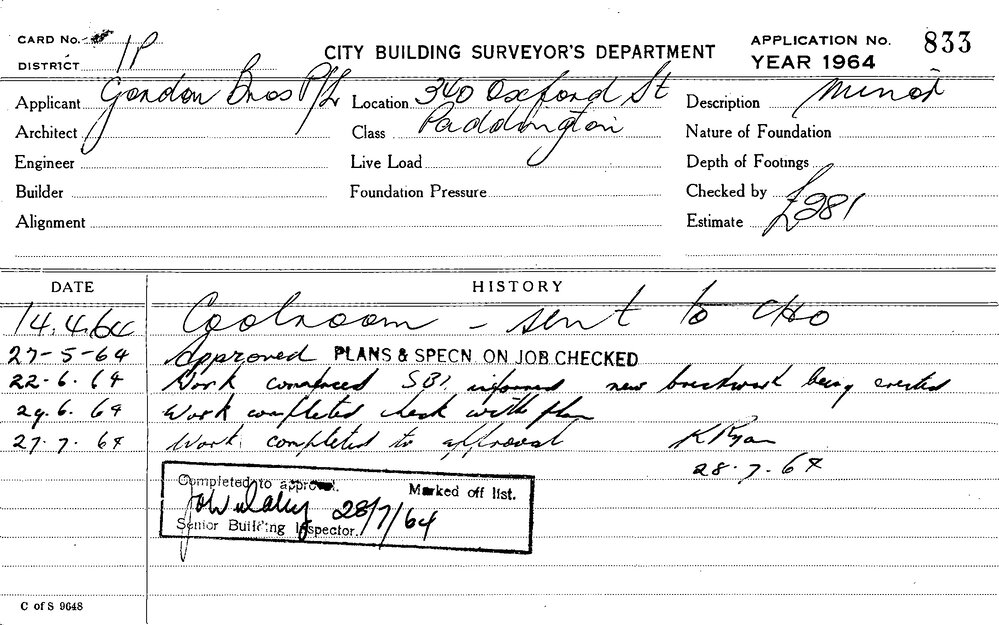 CARD No.
DISTRICT 1P
CITY BUILDING SURVEYOR'S DEPARTMENT
APPLICATION No. 833
YEAR 1964
Applicant Gordon Bros P/L
Location 340 Oxford St
Description Minor
Architect
Class Paddington
Nature of Foundation
Engineer
Live Load
Depth of Footings
Builder
Foundation Pressure
Checked by
Alignment
Estimate £281
DATE HISTORY
14.4.64 Coolroom - sent to CHO
27-5-64 Approved PLANS & SPECN. ON JOB CHECKED
22-6.64 Work commenced SBI. informed new brickwork being erected
29.6.64 Work completed check with plan
27.7.64 Work completed to approval K Ryan
28.7.64
Completed to approval. Marked off list.
28/7/64
Senior Building Inspector.
C of S 9648